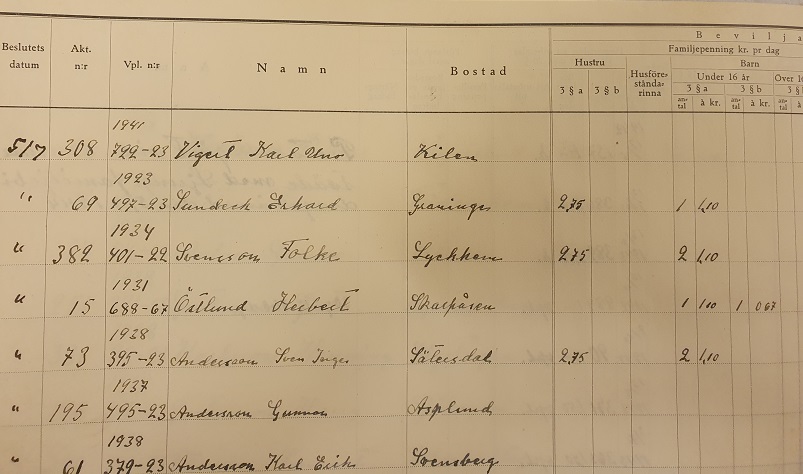 B e v i l j a
Familjepenning kr. pr dag
Beslutets datum
Akt. n:r
Vpl. n:r
N a m n
B o s t a d
Hustru
3 § a 3 § b
Husföre-
stånda-
rinna
Barn
Under 16 år
Over 16
3 § a 3 § b 3 §
an-
tal à kr. an-
tal à kr. an-
tal à
1941
5/7 308 722-23 Vigert Karl Uno Kilen
1923
" 69 497-23 Sundeck Erhard Graninge 2,75 1 1,10
1934
" 382 401-22 Svensson Folke 2,75 2 1,10
1931
" 15 688-67 Östlund Herbert Skarpåsen 1 1,10 1 0 67
1938
" 73 395-23 Andersson Sven Inge Sätersdal 2,75 2 1,10
1937
" 195 495-23 Andersson Gunnar Asplund
1938
" 61 379-23 Andersson Karl Erik Svensberg